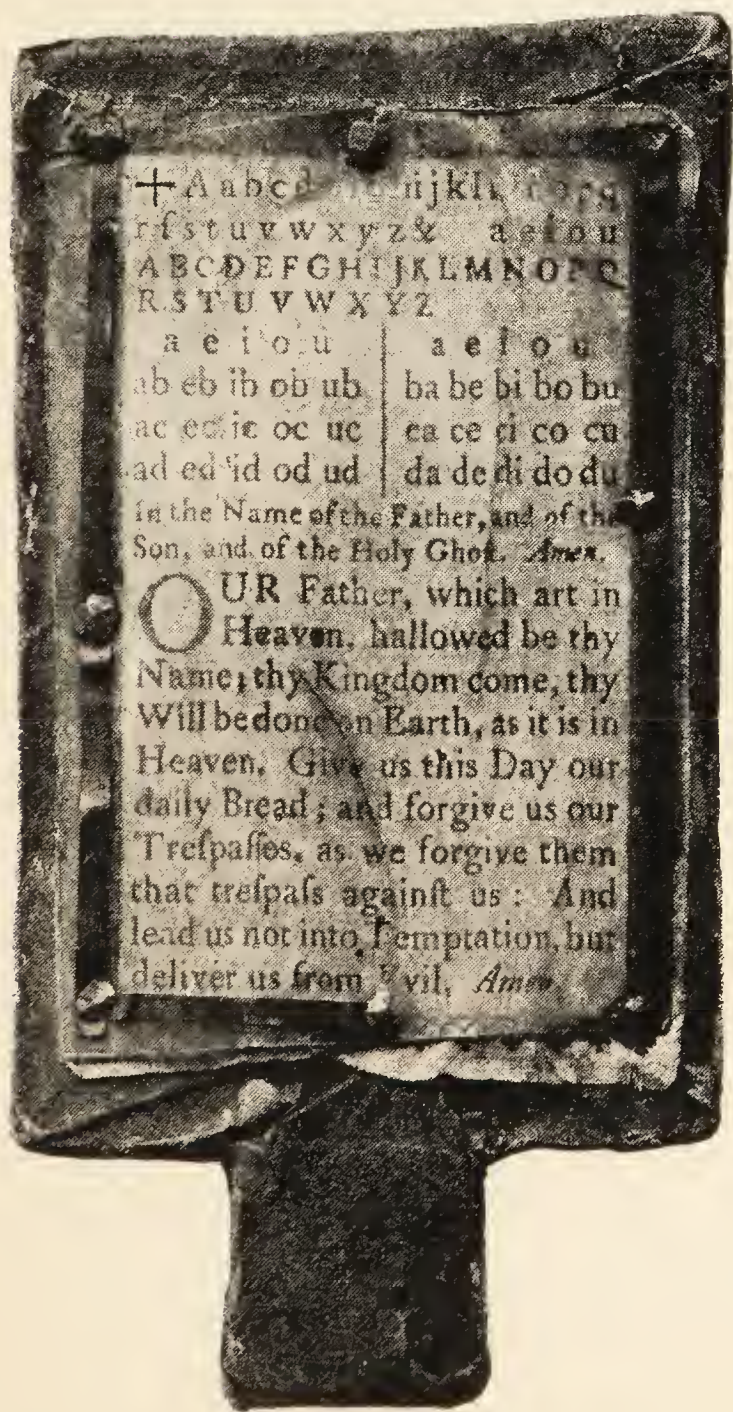 + A a b c d i j k l o p q
r ſ s t u v w x y z & a e i o u
A B C D E F G H I J K L M N O P Q
R S T U V W X Y Z
a e i o u a e i o u
ab eb ib ob ub ba be bi bo bu
ac ec ic oc uc ca ce ci co cu
ad ed id od ud da de di do du
In the Name of the Father, and of the
Son, and of the Holy Ghoſt. Amen.
OUR Father, which art in
Heaven, hallowed be thy
Name; thy Kingdom come, thy
Will be done on Earth, as it is in
Heaven. Give us this Day our
daily Bread; and forgive us our
Treſpaſſes, as we forgive them
that treſpaſs againſt us: And
lead us not into Temptation, but
deliver us from Evil. Amen.